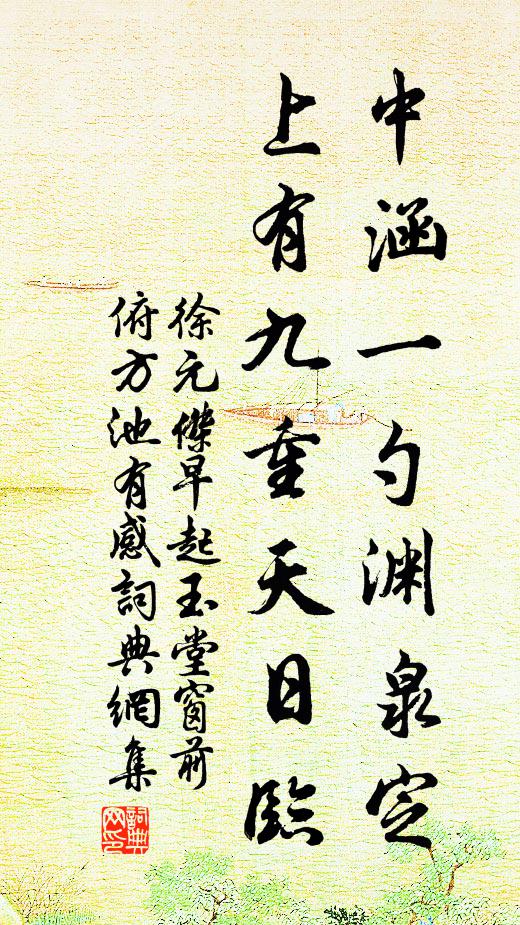 中涵一勺渊泉定
上有九重天日临
徐元傑早起玉堂窗前
俯方池有感詞典網集
詞典网印